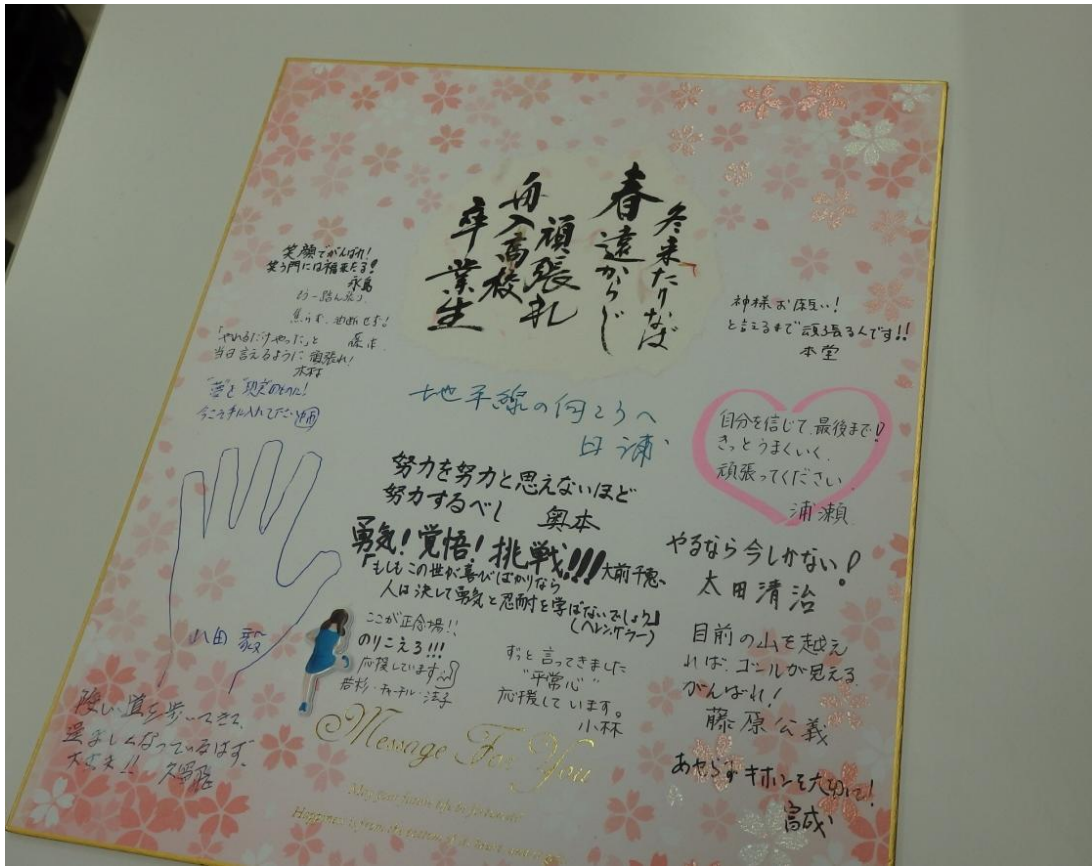 冬来たりなば
春遠からじ
頑張れ
舟入高校
卒業生
笑顔でがんばれ!
笑う門には福来たる!
永島
焦らず、油断せず!
「やれるだけやった」と
当日言えるように頑張れ!
木村
今こそ手に入れて下さい
神様お願い!
と言えるまで頑張るんです!!
本堂
地平線の向こうへ
日浦
自分を信じて、最後まで!
きっとうまくいく。
頑張ってください。
浦瀬
努力を努力と思えないほど
努力するべし 奥本
勇気!覚悟!挑戦!!! 大前千恵
「もしもこの世が喜びばかりなら
人は決して勇気と忍耐を学ばないでしょう」
(ヘレン・ケラー)
やるなら今しかない!
太田清治
山田 毅
ここが正念場!!
のりこえろ!!!
応援しています
若杉・チャーチル・法子
ずっと言ってきました
"平常心"
応援しています。
小林
目前の山を越え
れば、ゴールが見える。
がんばれ!
藤原公義
険しい道を歩いてきて、
逞しくなっているはず。
大丈夫!!
あせらず キホンを大切に!
Message For You